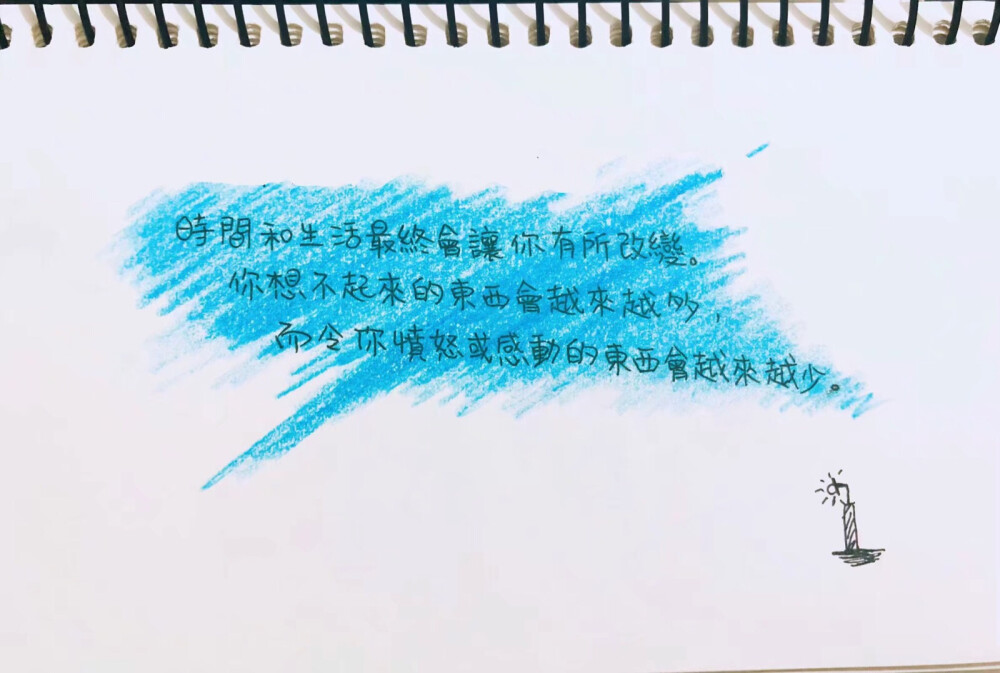 時間和生活最終會讓你有所改變。
你想不起來的東西會越來越多，
而令你憤怒或感動的東西會越來越少。